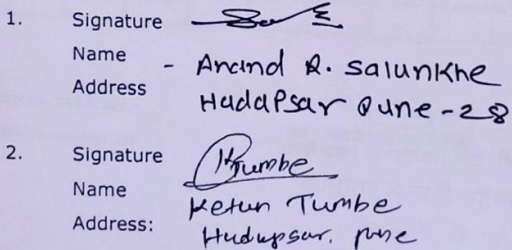 1. Signature
Name - Anand R. Salunkhe
Address Hadapsar Pune - 28
2. Signature KTumbe
Name Ketan Tumbe
Address: Hadapsar. Pune